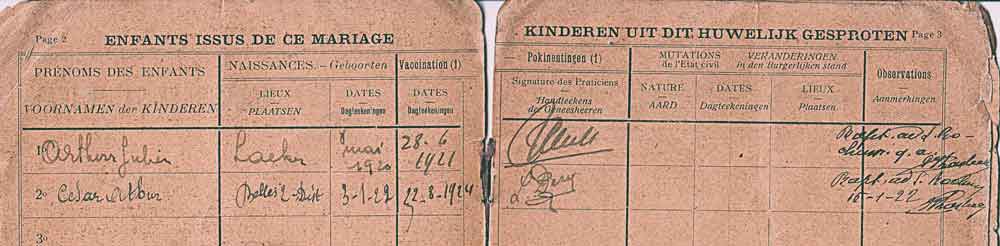 Page 2
ENFANTS ISSUS DE CE MARIAGE
PRÉNOMS DES ENFANTS
VOORNAMEN der KINDEREN
NAISSANCES.— Geboorten
LIEUX
PLAATSEN
DATES
Dagteekeningen
Vaccination (1)
DATES
Dagteekeningen
1º Arthur Julien
mai
1920
28-6
1921
2º Cesar Arthur
3-1-22
22-8-1924
3º
KINDEREN UIT DIT HUWELIJK GESPROTEN
Page 3
Pokinentingen (1)
Signature des Praticiens
Handteekens
der Geneesheeren
MUTATIONS
de l'Etat civil
VERANDERINGEN
in den Burgerlijken stand
NATURE
AARD
DATES
Dagteekeningen
LIEUX
Plaatsen
Observations
Aanmerkingen
Bapt. ad
Bapt. ad
16-1-22